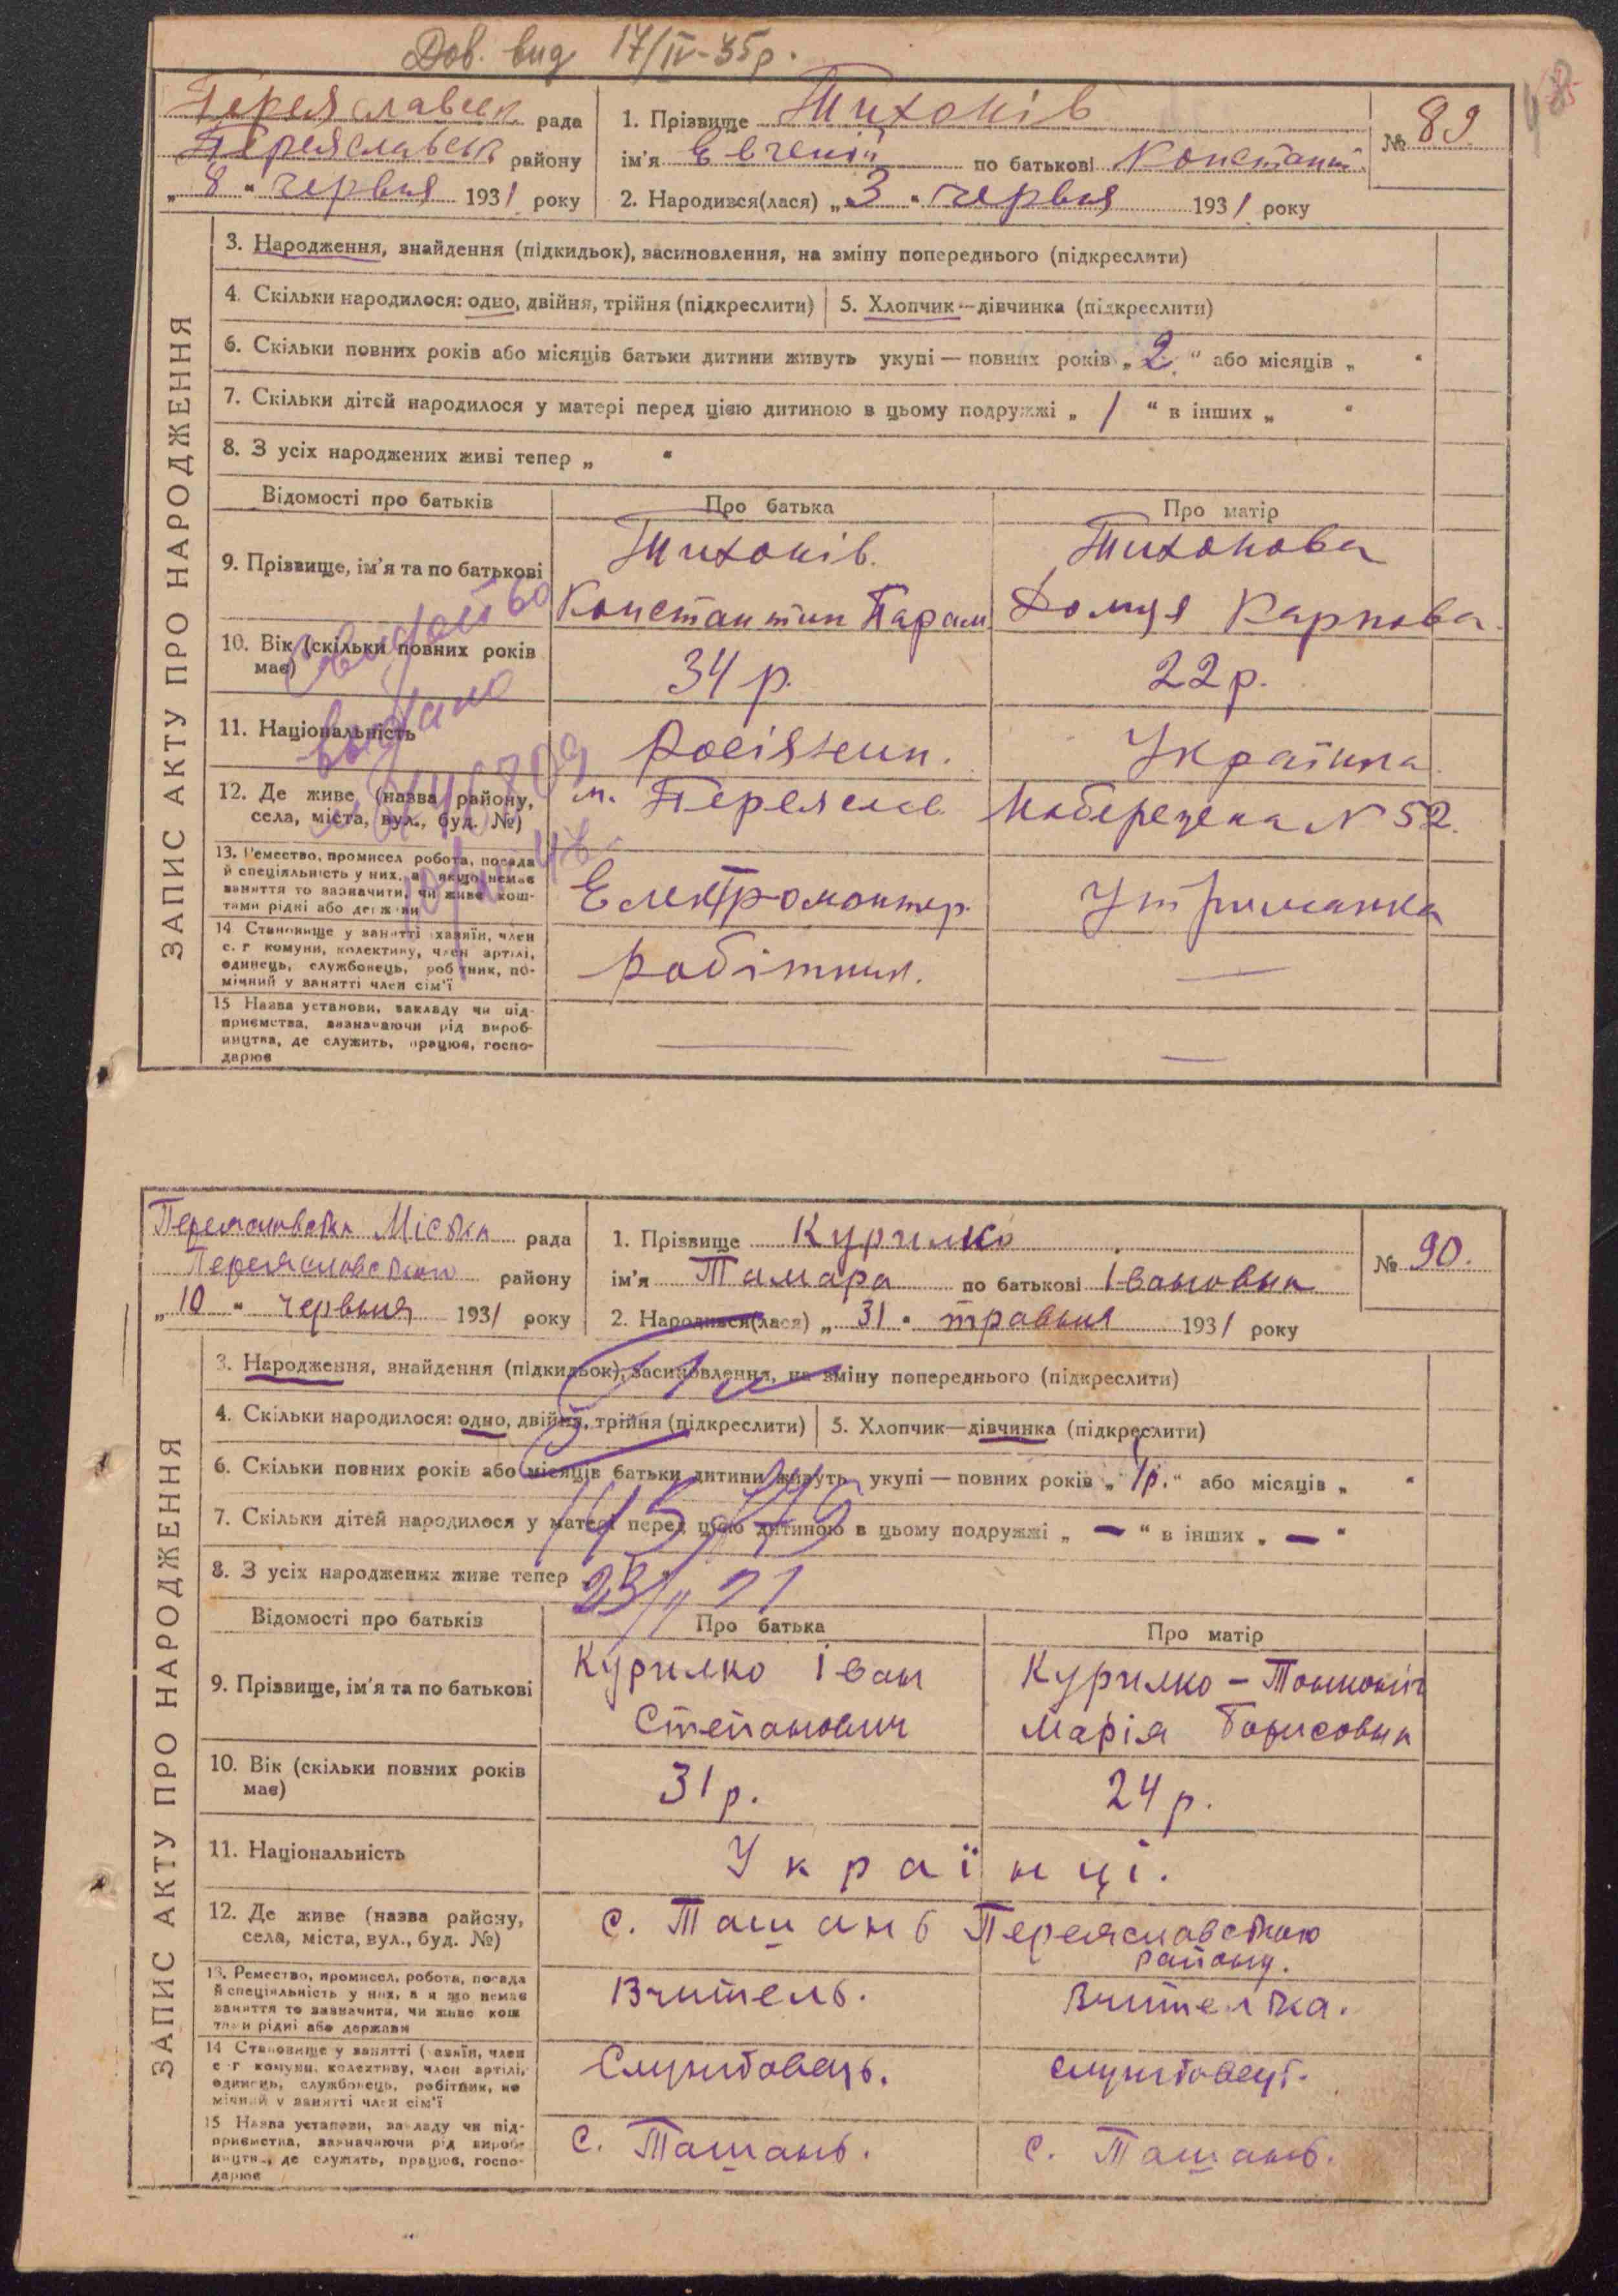 Дов. вид 17/IV-35р.
Переяславськ рада
Переяславськ району
„8" червня 1931 року
1. Прізвище Тихонів
ім'я Евгеній по батькові Констант
2. Народився(лася) „3" червня 1931 року
№ 89.
ЗАПИС АКТУ ПРО НАРОДЖЕННЯ
3. Народження, знайдення (підкидьок), засиновлення, на зміну попереднього (підкреслити)
4. Скільки народилося: одно, двійня, трійня (підкреслити) 5. Хлопчик—дівчинка (підкреслити)
6. Скільки повних років або місяців батьки дитини живуть укупі — повних років „2." або місяців „ "
7. Скільки дітей народилося у матері перед цією дитиною в цьому подружжі „ 1 " в інших „ "
8. З усіх народжених живі тепер „ "
Відомості про батьків Про батька Про матір
9. Прізвище, ім'я та по батькові
Тихонів. Тихонова
Константин Парам Домця Карпова.
10. Вік (скільки повних років має)
34 р. 22 р.
11. Національність
Росіянин. Українка.
12. Де живе (назва району, села, міста, вул., буд. №)
м. Переяслав Набережна N 52.
13. Ремество, промисел робота, посада
й спеціяльність у них, а якщо немає
заняття то зазначити, чи живе кош-
тами рідні або держави
Електромонтер. Утриманка
14 Становище у занятті хазяїн, член
с. г комуни, колективу, член артілі,
одинець, службовець, робітник, по-
мічний у занятті член сім'ї
Робітник. —
15 Назва установи, закладу чи під-
приємства, зазначаючи рід вироб-
ництва, де служить, працює, госпо-
дарює
— —
Свидоцтво
видано
Переяславська Міська рада
Переяславського району
„10" червня 1931 року
1. Прізвище Курилко
ім'я Тамара по батькові Івановна
2. Народився(лася) „31" травня 1931 року
№ 90.
ЗАПИС АКТУ ПРО НАРОДЖЕННЯ
3. Народження, знайдення (підкидьок), засиновлення, на зміну попереднього (підкреслити)
4. Скільки народилося: одно, двійня, трійня (підкреслити) 5. Хлопчик—дівчинка (підкреслити)
6. Скільки повних років або місяців батьки дитини живуть укупі — повних років „1р." або місяців „ "
7. Скільки дітей народилося у матері перед цією дитиною в цьому подружжі „ — " в інших „ — "
8. З усіх народжених живе тепер
Відомості про батьків Про батька Про матір
9. Прізвище, ім'я та по батькові
Курилко Іван Курилко –
Степанович Марія Борисовна
10. Вік (скільки повних років має)
31 р. 24 р.
11. Національність
Українці.
12. Де живе (назва району, села, міста, вул., буд. №)
с. Ташань Переяславського
району.
13. Ремество, промисел, робота, посада
й спеціяльність у них, а якщо немає
заняття то зазначити, чи живе кош
тами рідні або держави
Вчитель. Вчителька.
14 Становище у занятті (хазяїн, член
с-г комуни, колективу, член артілі,
одинець, службовець, робітник, по
мічний у занятті член сім'ї
Службовець. Службовець.
15 Назва установи, закладу чи під-
приємства, зазначаючи рід вироб-
ництва, де служить, працює, госпо-
дарює
с. Ташань. с. Ташань.